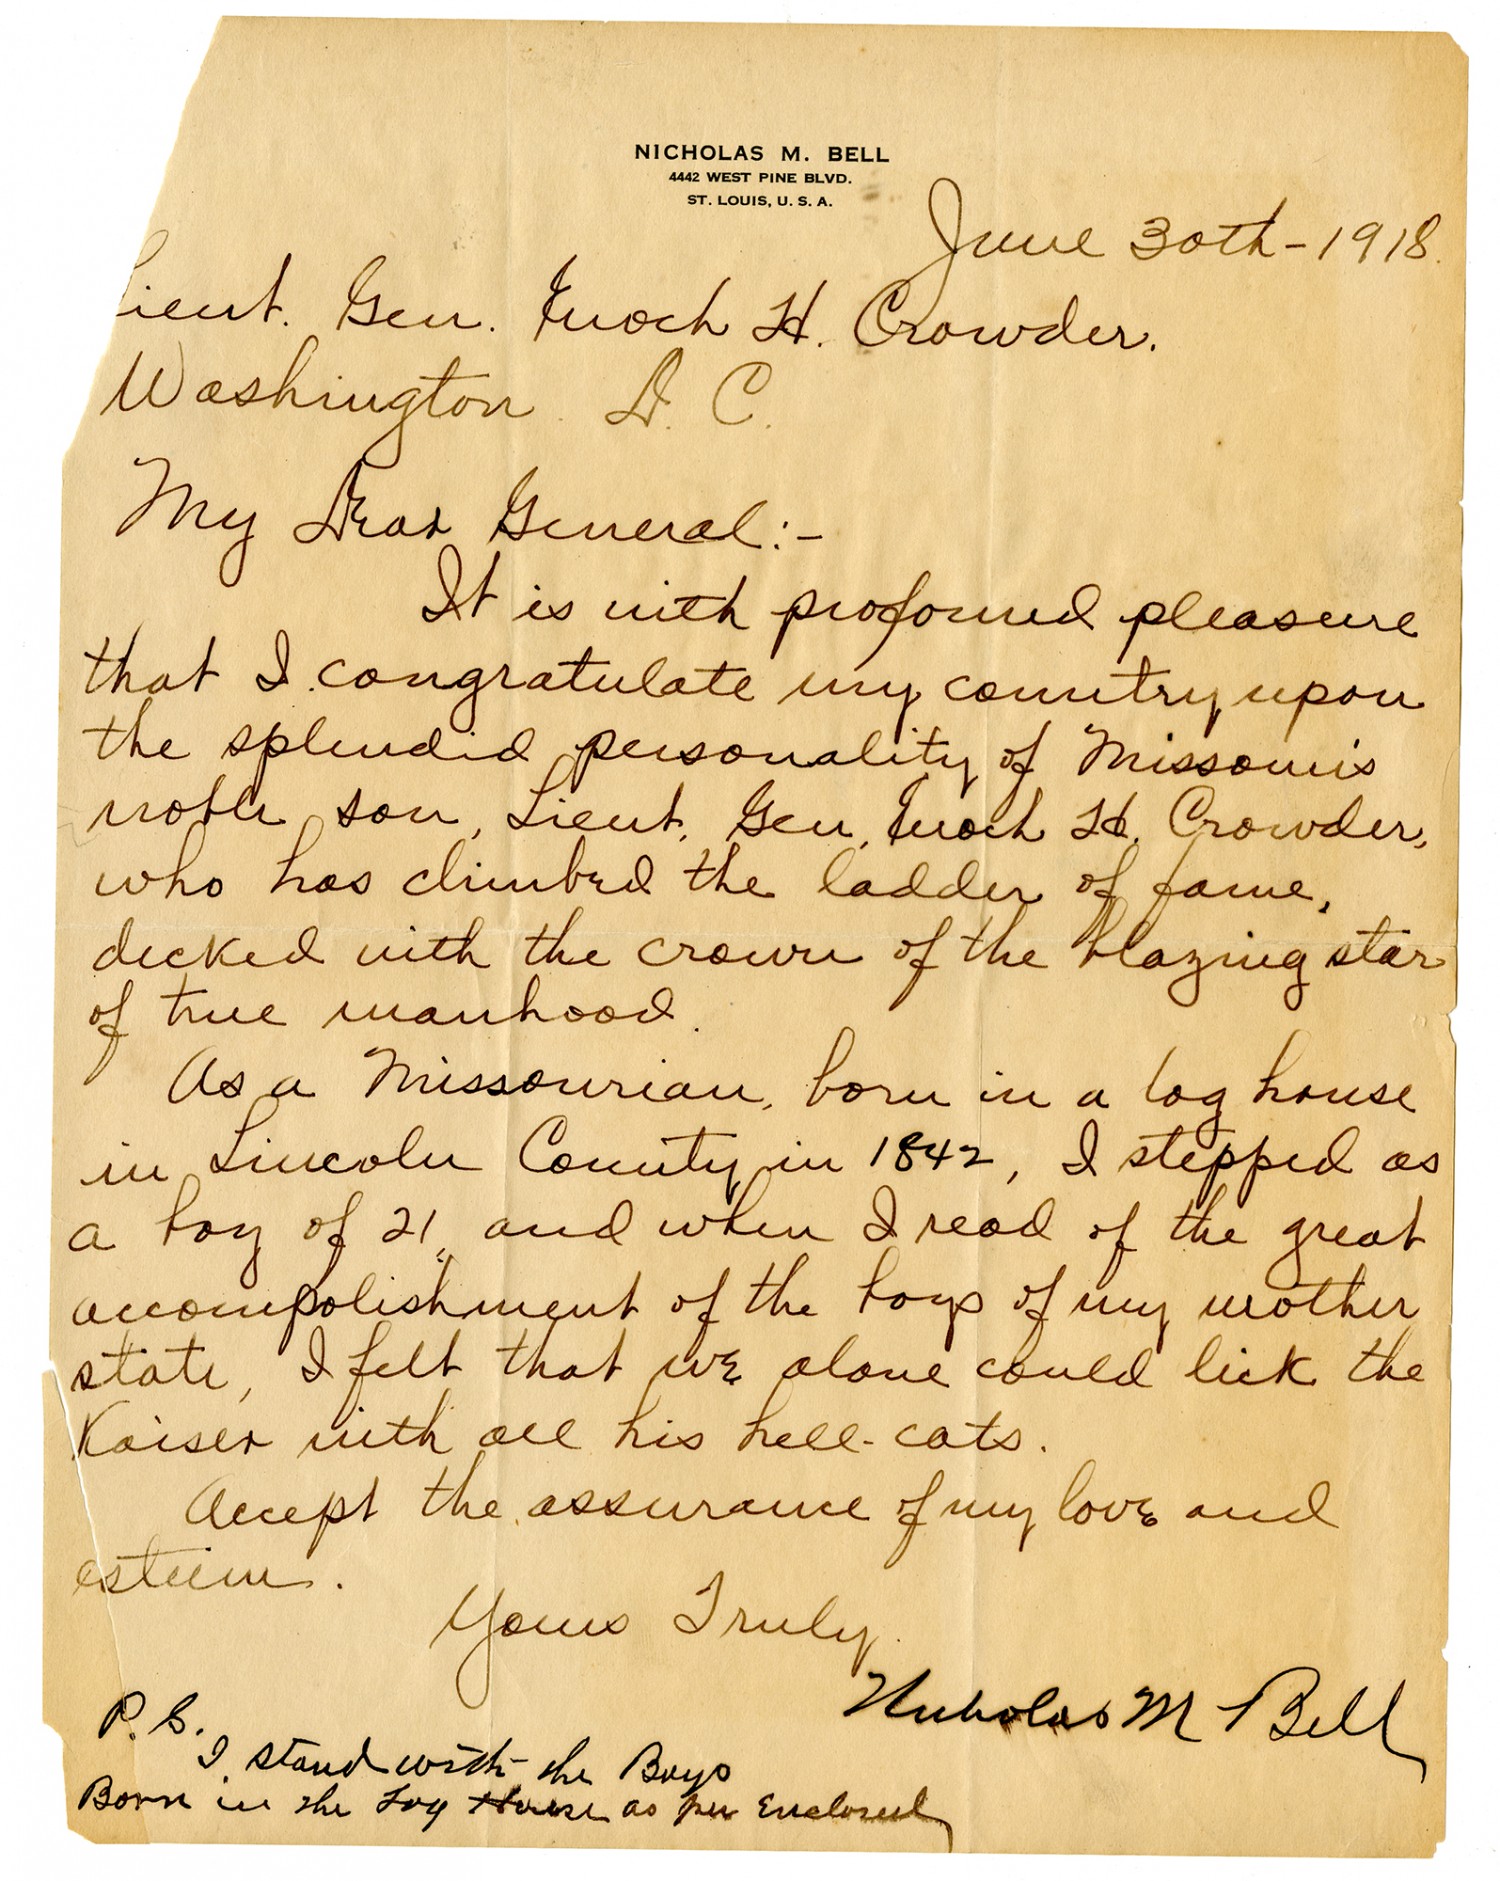 NICHOLAS M. BELL
4442 WEST PINE BLVD.
ST. LOUIS, U. S. A.
June 30th - 1918.
Lieut. Gen. Enoch H. Crowder.
Washington D. C.
My Dear General:-
It is with profound pleasure
that I congratulate my country upon
the splendid personality of Missouri's
noble son, Lieut. Gen. Enoch H. Crowder,
who has climbed the ladder of fame,
decked with the crown of the blazing star
of true manhood.
As a Missourian, born in a log house
in Lincoln County in 1842, I stepped as
a boy of 21, and when I read of the great
accompolishment of the boys of my mother
state, I felt that we alone could lick the
Kaiser with all his hell-cats.
Accept the assurance of my love and
esteem.
Yours Truly.
Nicholas M Bell
P. S.
I stand with the Boys
Born in the Log House as per Enclosed